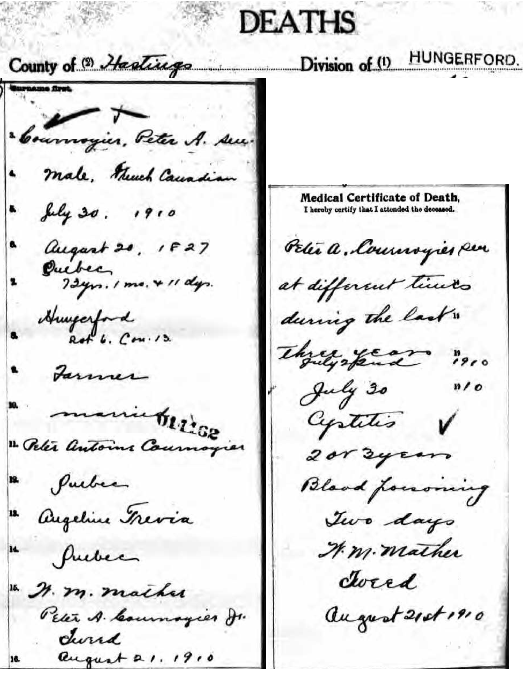 DEATHS
County of (2) Hastings Division of (1) HUNGERFORD.
Surname first.
3. Cournoyier, Peter A. Sen.
4. Male, French Canadian
5. July 30, 1910
6. August 20, 1827
Quebec
7. 72yrs. 1 mo. + 11 dys.
Hungerford
8. Lot 6. Con. 13
9. Farmer
10. married
011162
11. Peter Antoine Cournoyier
12. Quebec
13. Angeline Trevia
14. Quebec
15. W. M. Mather
Peter A. Cournoyier Jr.
Tweed
16. August 21. 1910
Medical Certificate of Death,
I hereby certify that I attended the deceased.
Peter A. Cournoyier Sen
at different times
during the last "
three years "
July 22nd 1910
July 30 "10
Cystitis
2 or 3 years
Blood poisoning
Two days
W. M. Mather
Tweed
August 21st 1910